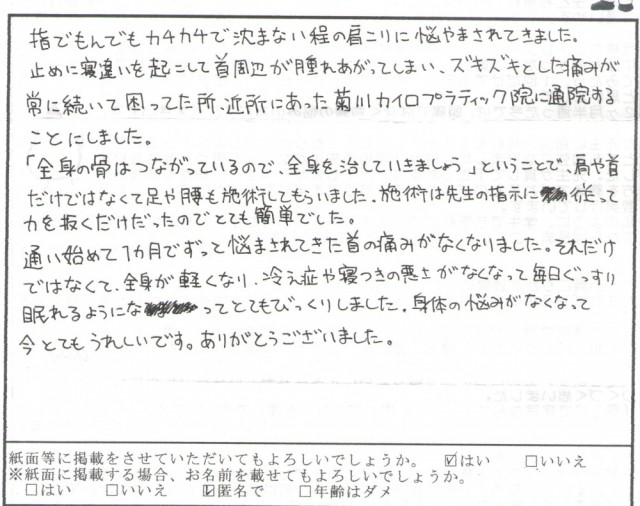 指でもんでもカチカチで沈まない程の肩こりに悩やまされてきました。
止めに寝違いを起こして首周辺が腫れあがってしまい、ズキズキとした痛みが
常に続いて困ってた所、近所にあった菊川カイロプラティック院に通院する
ことにしました。
「全身の骨はつながっているので、全身を治していきましょう」ということで、肩や首
だけではなくて足や腰も施術してもらいました。施術は先生の指示に従って
力を抜くだけだったのでとても簡単でした。
通い始めて1カ月でずっと悩まされてきた首の痛みがなくなりました。それだけ
ではなくて、全身が軽くなり、冷え症や寝つきの悪さがなくなって毎日ぐっすり
眠れるようになってとてもびっくりしました。身体の悩みがなくなって
今とてもうれしいです。ありがとうございました。
紙面等に掲載をさせていただいてもよろしいでしょうか。 ☑はい □いいえ
※紙面に掲載する場合、お名前を載せてもよろしいでしょうか。
□はい □いいえ ☑匿名で □年齢はダメ